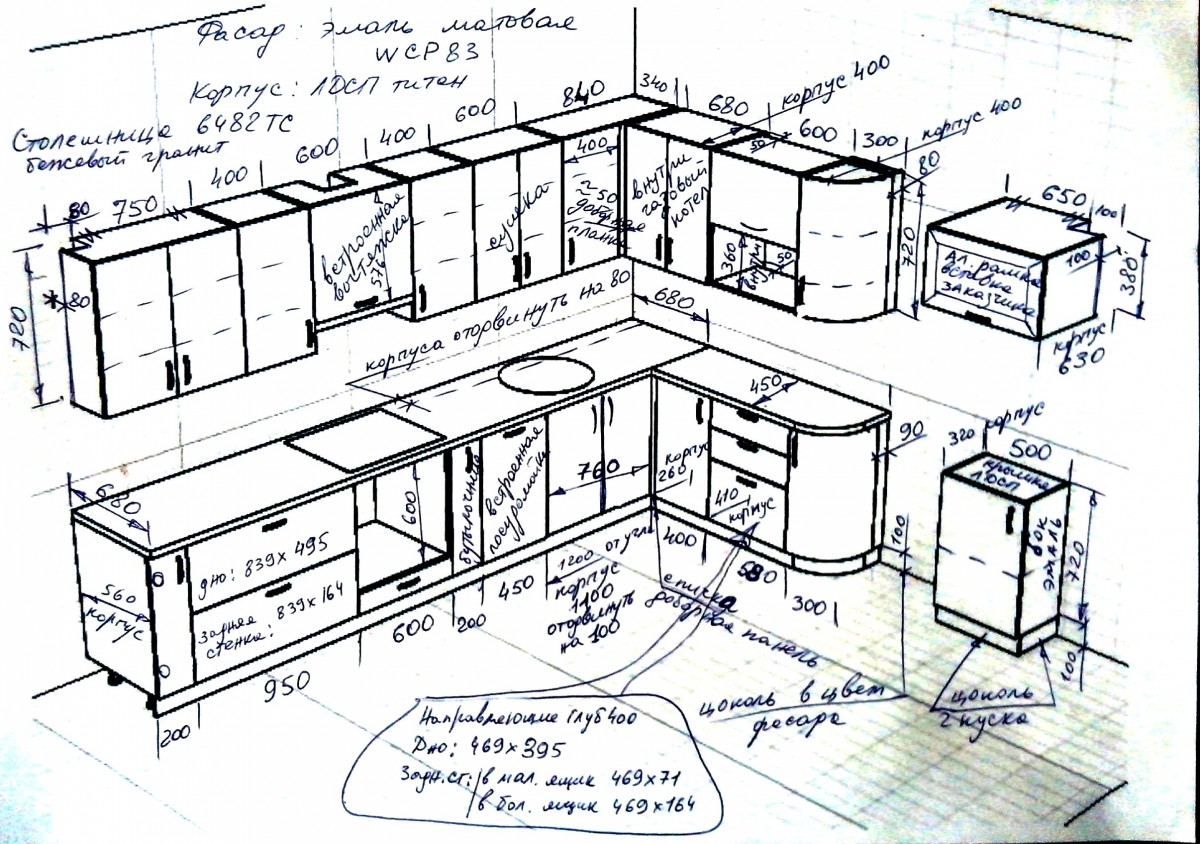 Фасад: эмаль матовая
WCP83
Корпус: ЛДСП титан
Столешница 6482ТС
бежевый гранит
80
750
400
600
400
600
840
340
680
корпус 400
600
300
корпус 400
80
720
80
встроенная
вытяжка
576
сушка
400
≈50
доборная
планка
внутри
газовый
котел
50
360
внутри
50
720
650
100
Ал. рамка
вставка
заказчика
100
380
корпус
630
корпуса отодвинуть на 80
680
680
450
90
560
корпус
дно: 839х495
задняя
стенка: 839х164
600
бутылочница
встроенная
посудомойка
760
корпус
260
410
корпус
100
320 корпус
500
крышка
ЛДСП
бок
эмаль
720
100
200
950
600
200
450
1200 от угла
корпус
1100
отодвинуть
на 100
400
580
300
спичка
доборная панель
цоколь в цвет
фасада
цоколь
2 куска
Направляющие глуб 400
Дно: 469х395
Задн.ст: /в мал. ящик 469х71
/в бол. ящик 469х164